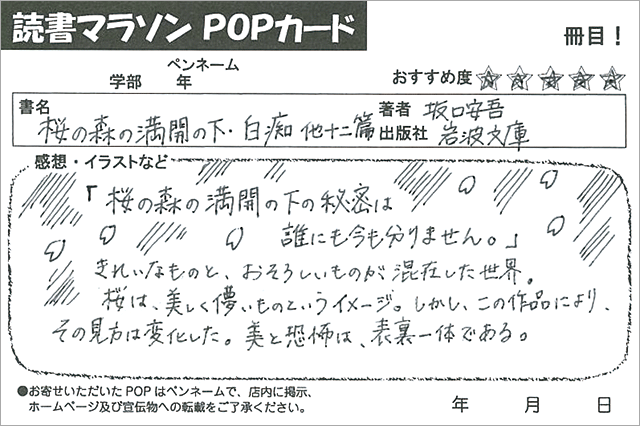 読書マラソン POPカード
冊目！
ペンネーム
学部 年
おすすめ度
書名
桜の森の満開の下・白痴 他十二篇
著者 坂口安吾
出版社 岩波文庫
感想・イラストなど
「桜の森の満開の下の秘密は
誰にも今も分りません。」
きれいなものと、おそろしいものが混在した世界。
桜は、美しく儚いものというイメージ。しかし、この作品により、
その見方は変化した。美と恐怖は、表裏一体である。
●お寄せいただいたPOPはペンネームで、店内に掲示、
ホームページ及び宣伝物への転載をご了承ください。
年 月 日